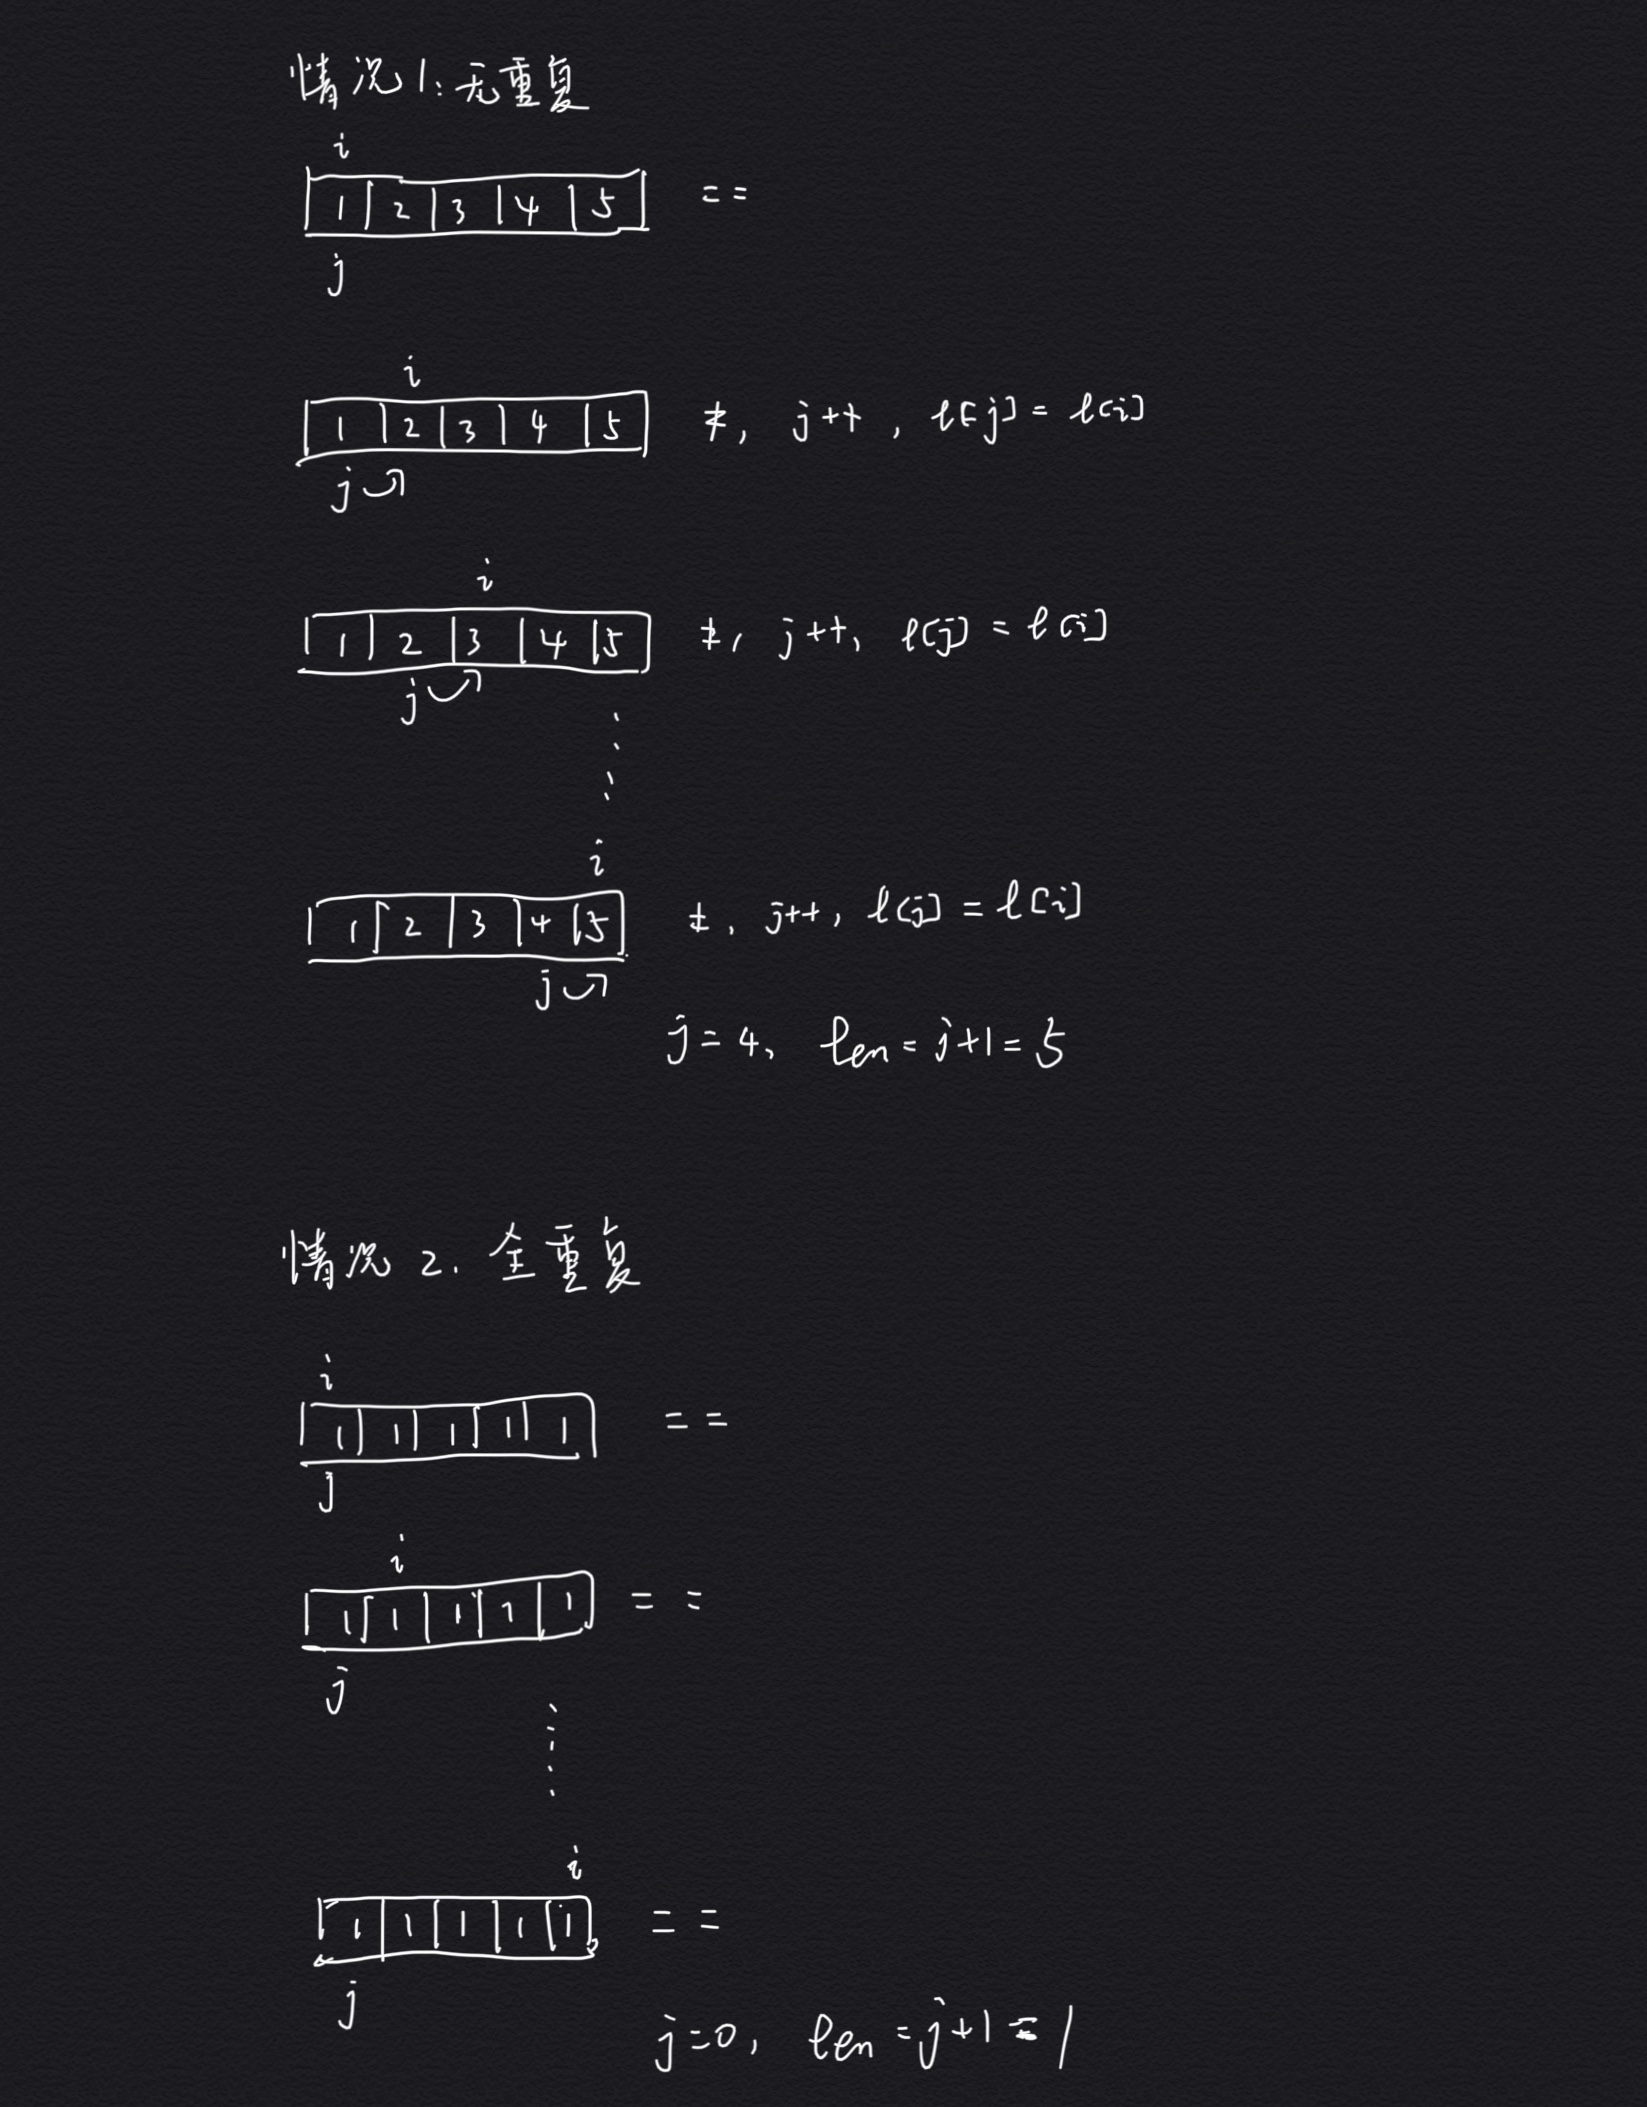 情况1:无重复
i
1 2 3 4 5 ==
j
i
1 2 3 4 5 ≠, j++, l[j] = l[i]
j
i
1 2 3 4 5 ≠, j++, l[j] = l[i]
j
i
1 2 3 4 5 ≠, j++, l[j] = l[i]
j
j=4, len=j+1=5
情况2. 全重复
i
1 1 1 1 1 ==
j
i
1 1 1 1 1 ==
j
i
1 1 1 1 1 ==
j
j=0, len=j+1=1